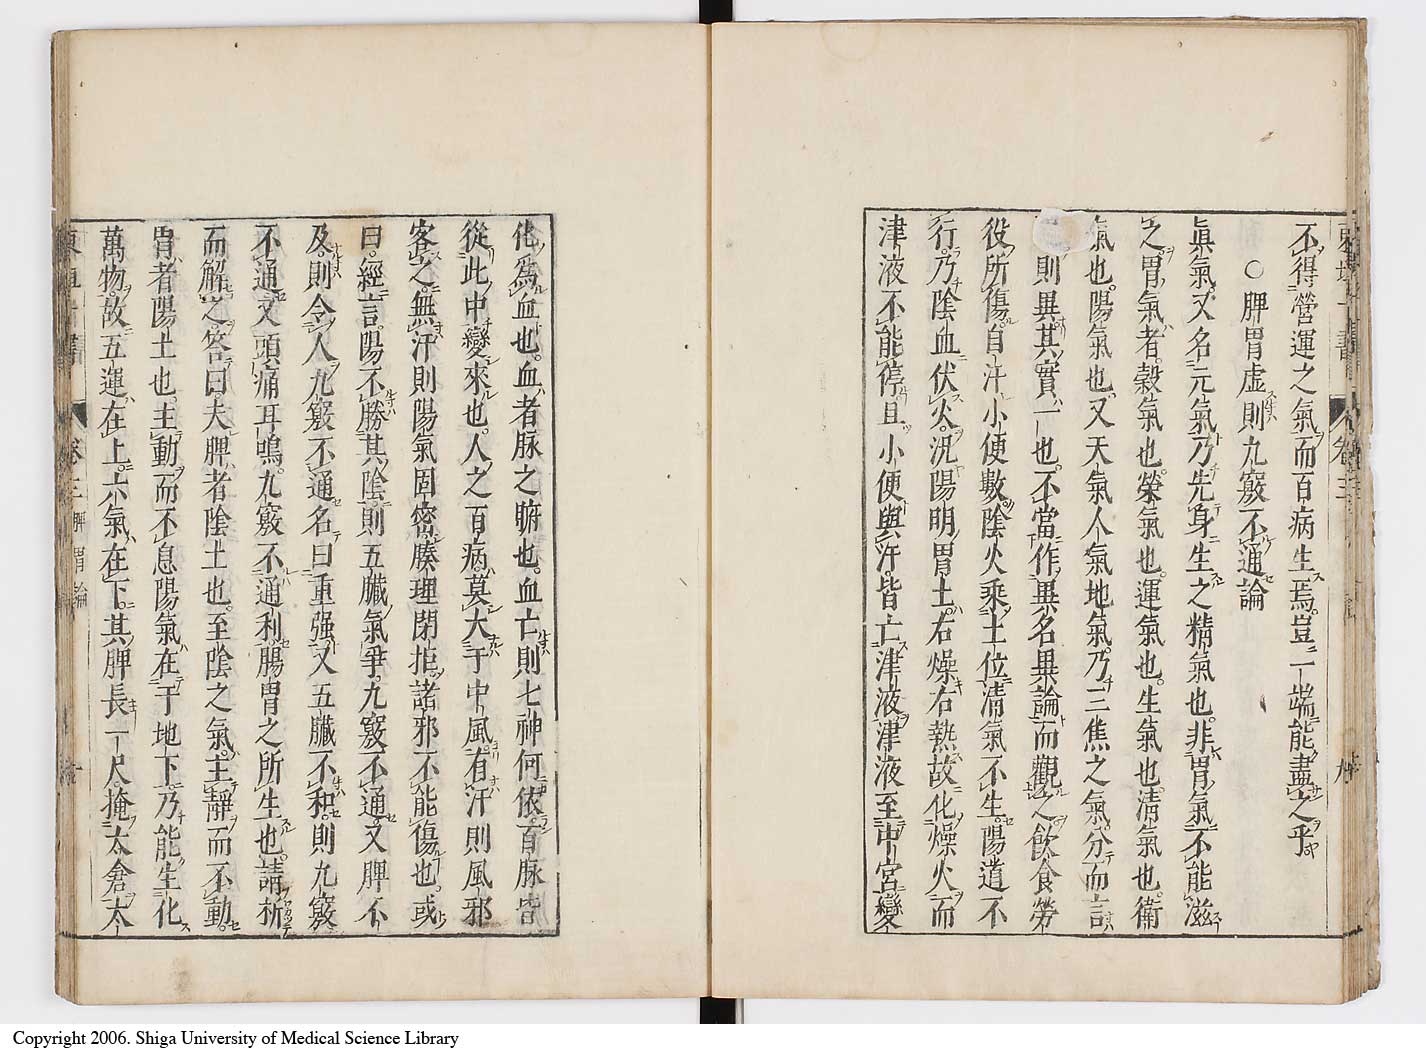 不得營運之氣而百病生焉豈一端能盡之乎
○脾胃虚則九竅不通論
眞氣又名元氣乃先身生之精氣也非胃氣不能滋
之胃氣者穀氣也榮氣也運氣也生氣也淸氣也衞
氣也陽氣也又天氣人氣地氣乃三焦之氣分而言
則異其實一也不當作異名異論而觀之飲食勞
役所傷自汗小便數陰火乘土位淸氣不生陽道不
行乃陰血伏火況陽明胃土右燥右熱故化燥火而
津液不能停且小便與汗皆亡津液津液至中宮變
化爲血也血者脉之腑也血亡則七神何依百脉皆
從此中變來也人之百病莫大于中風有汗則風邪
客之無汗則陽氣固密腠理閉拒諸邪不能傷也或
曰經言陽不勝其陰則五臟氣爭九竅不通又脾不
及則令人九竅不通名曰重强又五臟不和則九竅
不通又頭痛耳鳴九竅不通利腸胃之所生也請析
而解之答曰夫脾者陰土也至陰之氣主靜而不動
胃者陽土也主動而不息陽氣在于地下乃能生化
萬物故五運在上六氣在下其脾長一尺掩太倉太
卷三 脾胃論